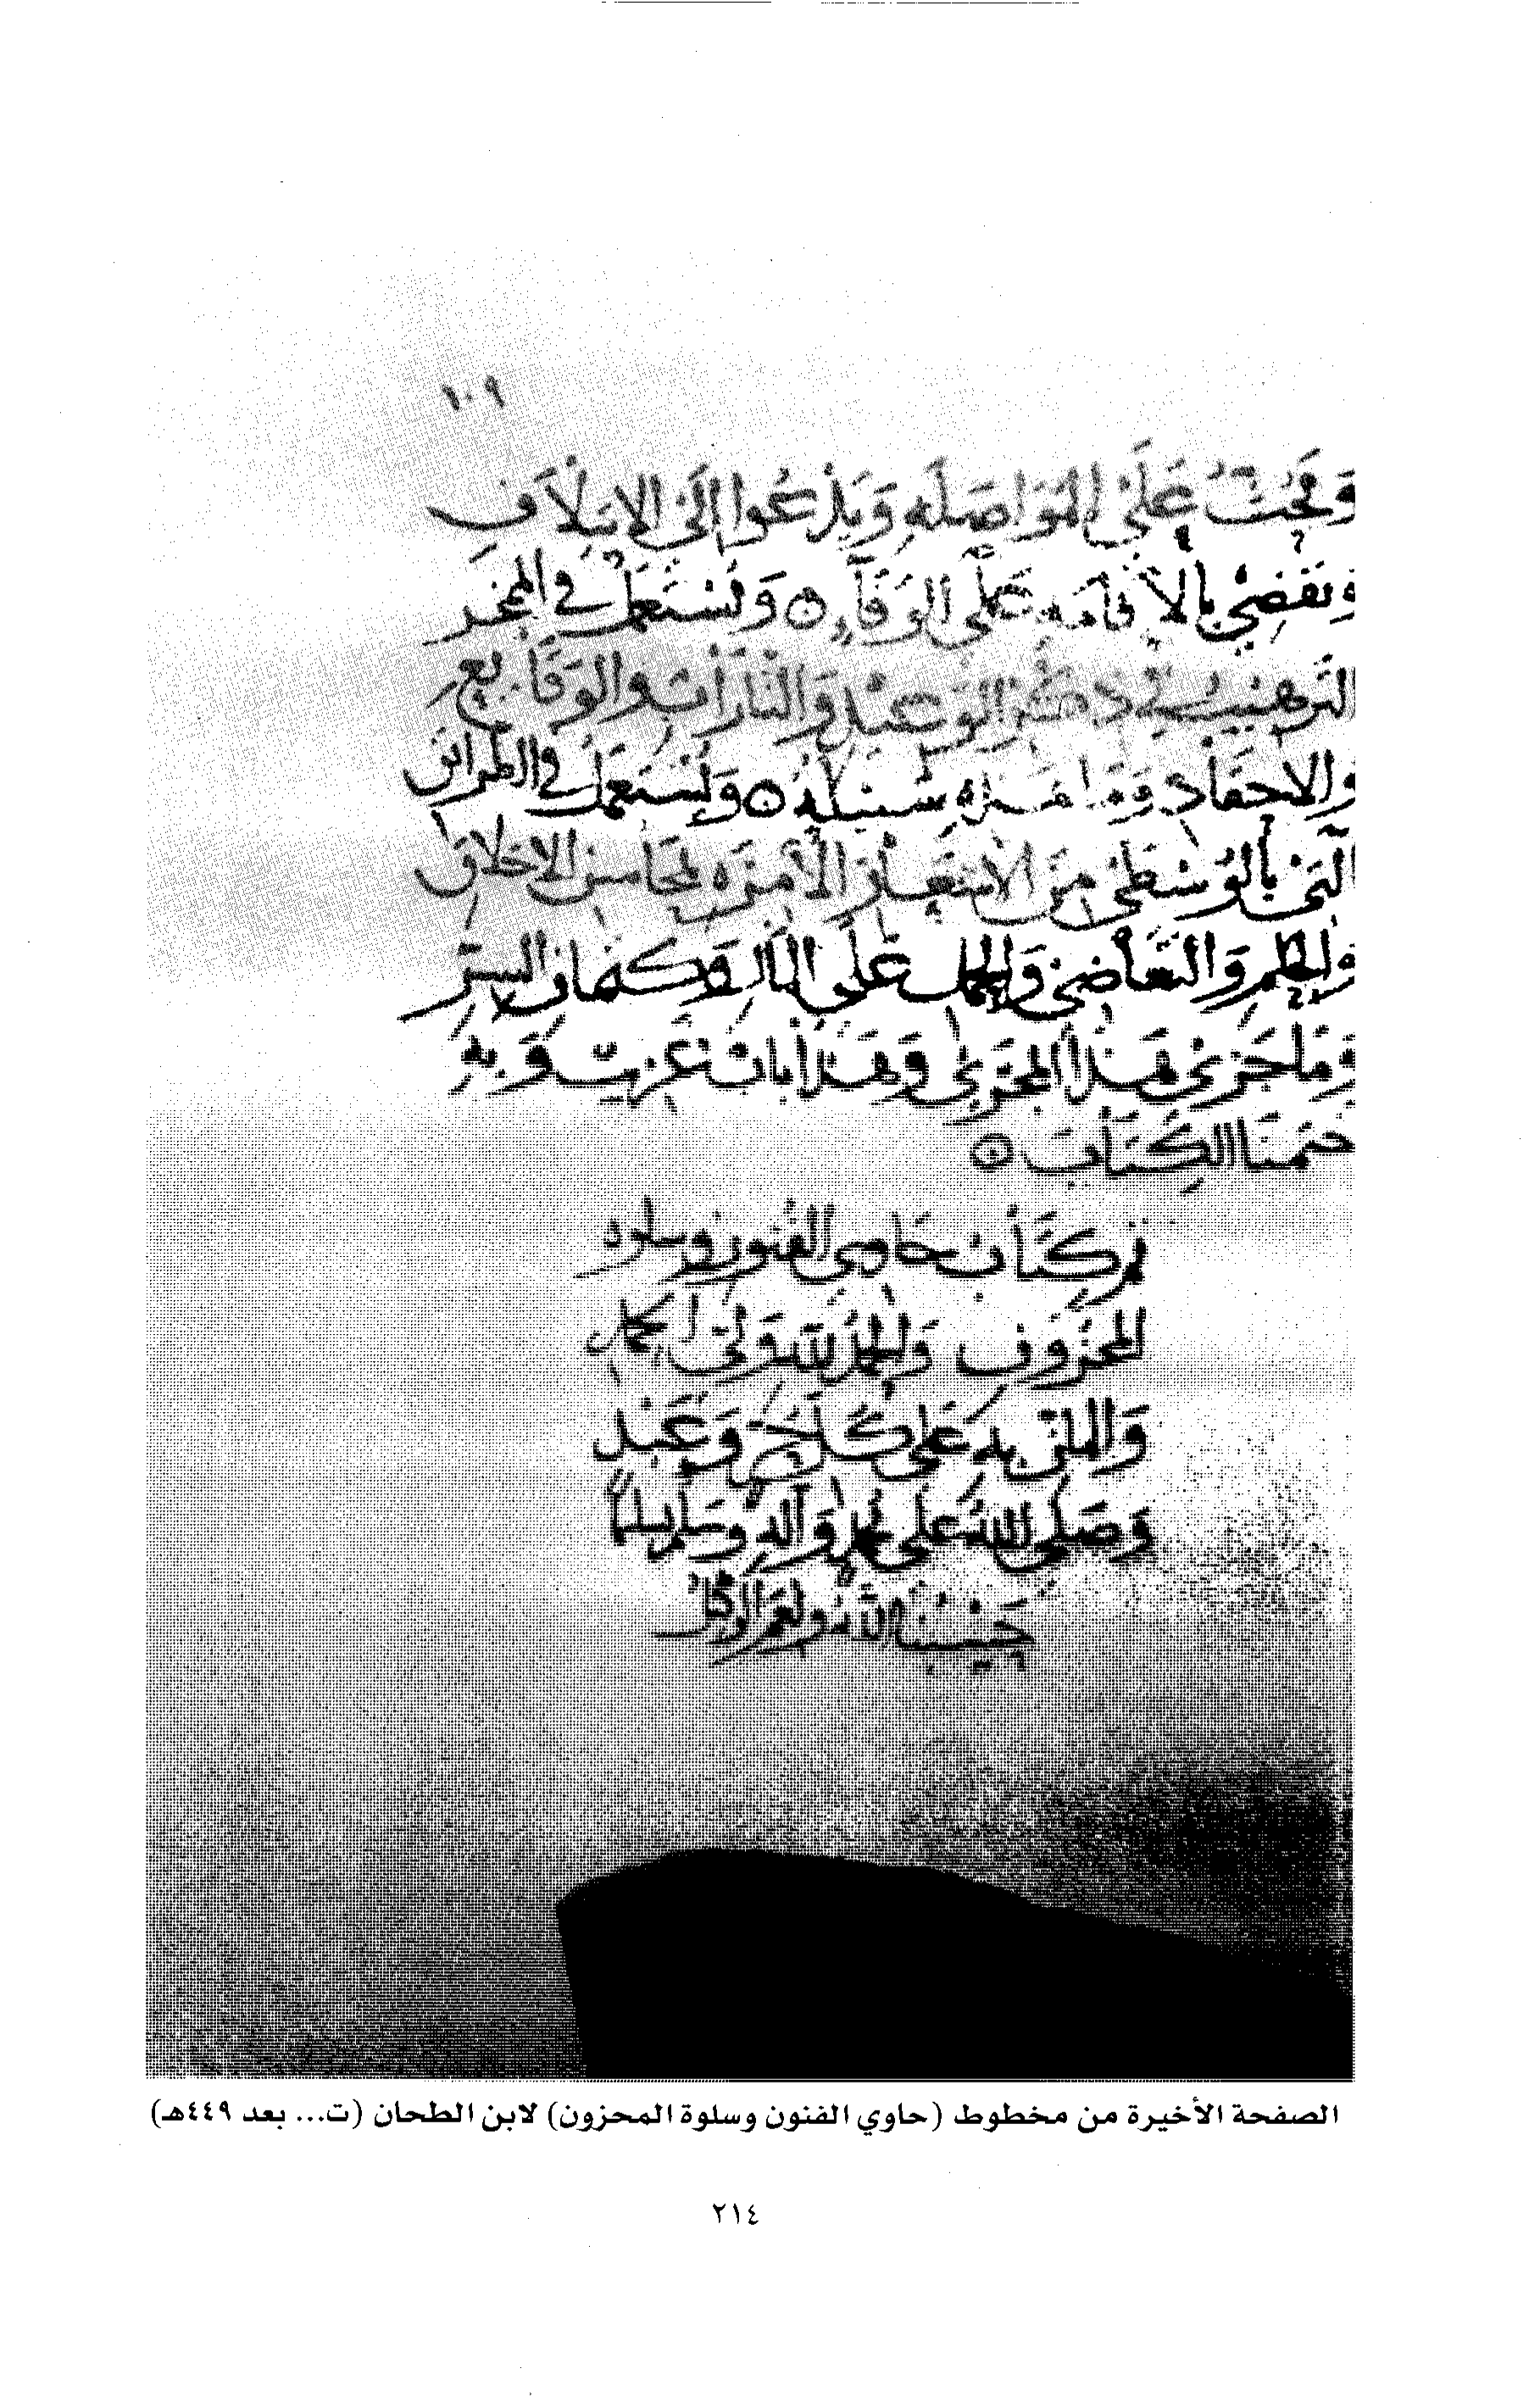 ١٠٩
وَتحثُ عَلَى المُوَاصَلَهِ وَيَدْعُوا إلَى الايتلَافِ
وتقضِي بالاقامَهِ عَلَى الوَفَآءِ ۞ وَتُسْتَعمَلُ في
الترهيبِ في ذكرِ الوَعيدِ وَالثَّارَاتِ والوَقَايعِ
والاحقَادِ وَمَا هَذِه سَبيلُهُ ۞ وَتُسْتَعمَلُ في الطرائق
التى بالوُسْطَى مِنَ الاشعَارِ الآمِرَه بمحَاسِنِ الاخلَاقِ
والحلمِ وَالتغَاضِى وَالحملِ عَلَى وَكتمانِ السِّرِّ
وَمَا جَرَى هَذَا المجْرَى وَهَذَا بَابٌ وَبهِ
خَتمنَا الكِتَابَ ۞
تم كِتَابُ حَاوِي الفُنون وسلوة
المحزُونِ وَالحمدُ للهِ وَلىّ
عَلَى كُلّ وَعَبْد
وَصَلى اللهُ عَلَى محمد وَآلهِ وَسَلم تسليماً
حَسْبُنَا اللهُ ونعم الوكيل
الصفحة الأخيرة من مخطوط (حاوي الفنون وسلوة المحزون) لابن الطحان (ت... بعد ٤٤٩هـ)
٢١٤